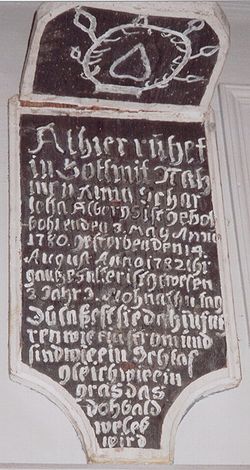 Alhier ruhet
in Gott mit Nah
men Anna Schar
lotta Albers Ist gebot
bohlen den 3. May Anno
1780. Gestorben den 14.
August Anno 1782 Ihr
gantzes Alter ist gewesen
2 Jahr 3. Mohnat 11 tag
hinfa
ren wie ein from und
sind wie ein Schlaf
gleich wie ein
gras das
doh bald
welck
wird